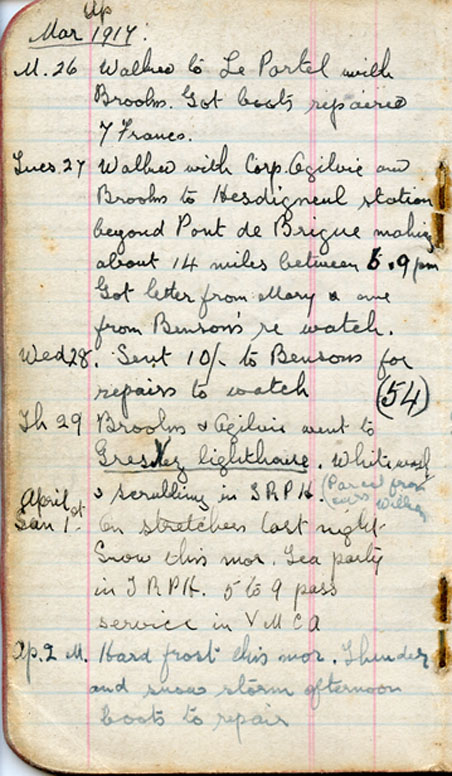 Ap
Mar 1917.
M. 26 Walked to Le Portel with
Brooks. Got boots repaired
7 Francs.
Tues. 27 Walked with Corp. Ogilvie and
Brooks to Hesdigneul station
beyond Pont de Brique making
about 14 miles between 6.9 pm
Got letter from Mary & one
from Benson's re watch.
Wed 28. Sent 10/- to Bensons for
repairs to watch (54)
Th 29 Brooks & Ogilvie went to
Gresnez lighthouse. Whitewash
& scrubbing in T.R.P.H. (Parcel from
April
Sun 1st On stretchers last night
Snow this mor. Tea party
in T R P H. 5 to 9 pass
service in Y M C A
Ap. 2 M. Hard frost this mor. Thunder
and snow storm afternoon
boots to repair